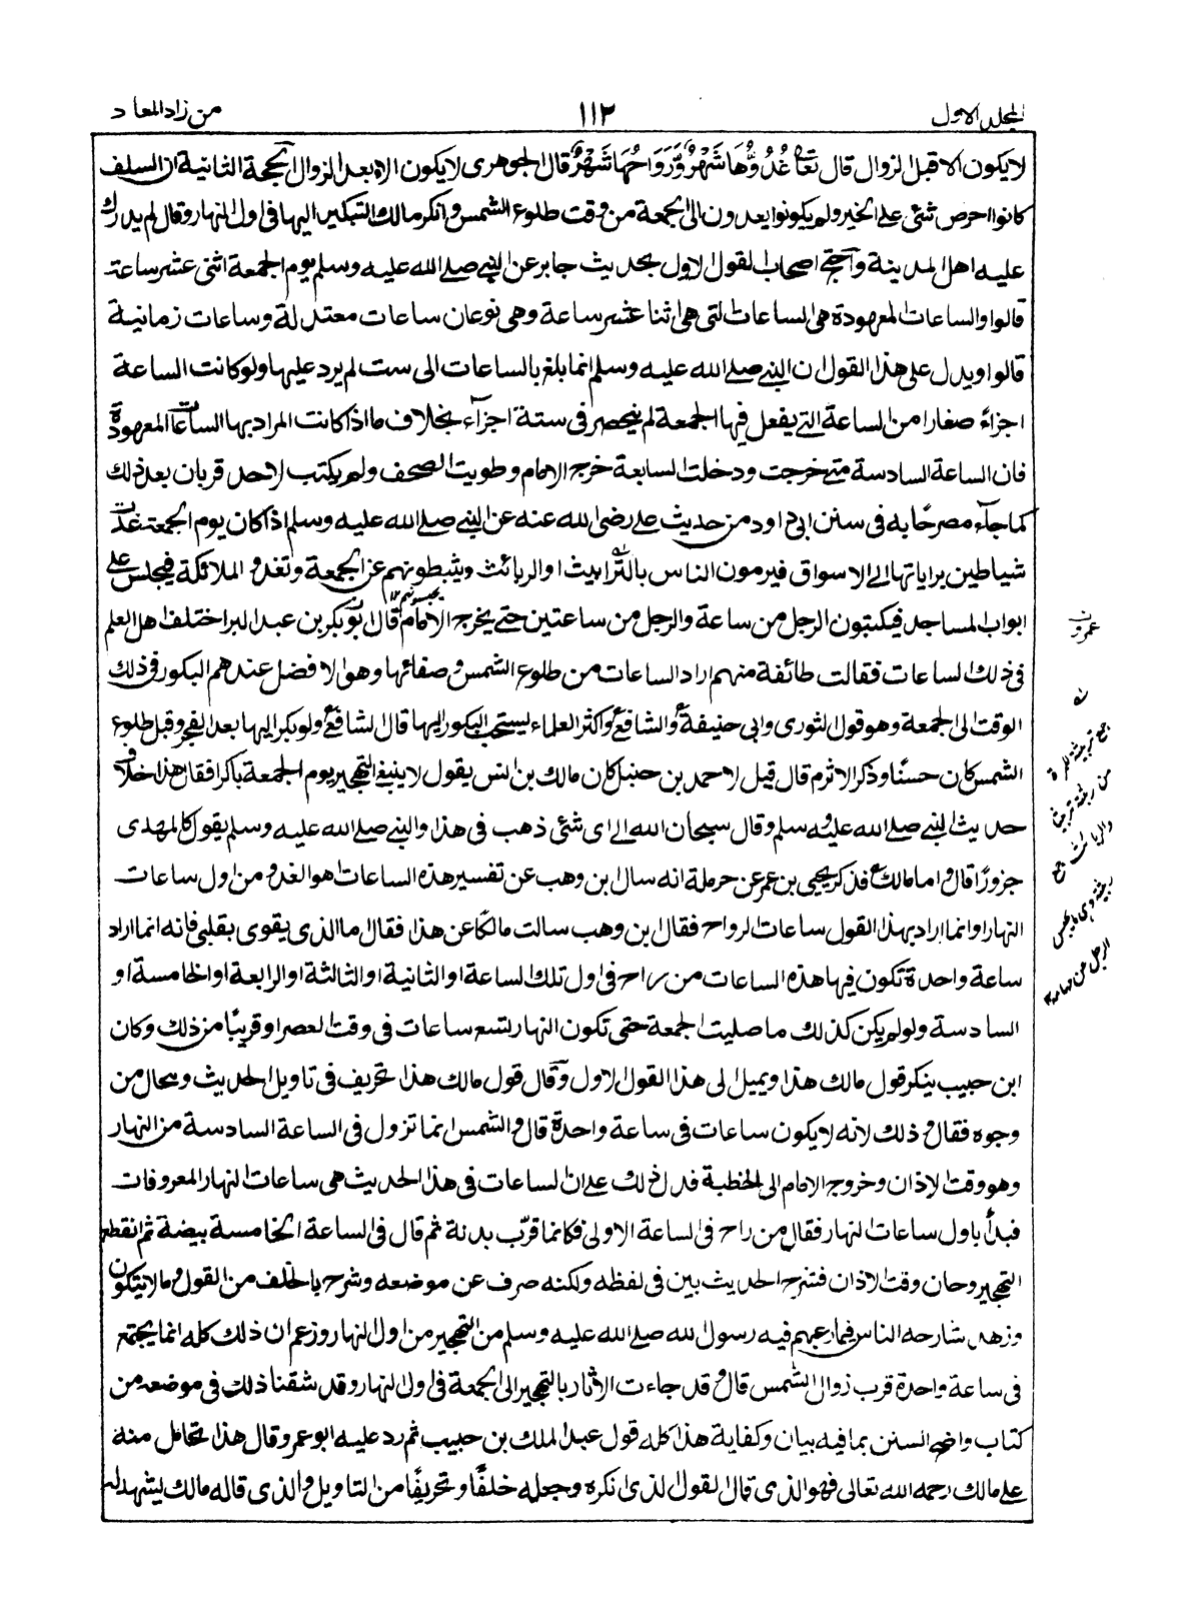 المجلد الاول
١١٢
من زاد المعاد
لا يكون الا قبل الزوال قال تعا غُدُوُّهَا شَهْرٌ وَّرَوَاحُهَا شَهْرٌ قال الجوهرى لا يكون الا بعد الزوال الحجة الثانية ان السلف
كانوا احرص شئى على الخير ولم يكونوا يغدون الى الجمعة من وقت طلوع الشمس وانكر مالك التبكير اليها فى اول النهار وقال لم يدرك
عليه اهل المدينة واحتج اصحاب القول الاول بحديث جابر عن النبى صلى الله عليه وسلم يوم الجمعة اثنى عشر ساعة
قالوا والساعات المعهودة هى الساعات التى هى اثنا عشر ساعة وهى نوعان ساعات معتدلة وساعات زمانية
قالوا ويدل على هذا القول ان النبى صلى الله عليه وسلم انما بلغ بالساعات الى ست لم يرد عليها ولو كانت الساعة
اجزاءً صغارا من الساعة التى يفعل فيها الجمعة لم ينحصر فى ستة اجزآء بخلاف ما اذا كانت المراد بها الساعات المعهودة
فان الساعة السادسة متى خرجت ودخلت السابعة خرج الامام وطويت الصحف ولم يكتب لاحد قربان بعد ذلك
كما جآء مصرحًا به فى سنن ابى داود من حديث على رضى الله عنه عن النبى صلى الله عليه وسلم اذا كان يوم الجمعة غدت
شياطين براياتها الى الاسواق فيرمون الناس بالترابيث او الربائث ويثبطونهم عن الجمعة وتغدو الملائكة فيجلس على
ابواب المساجد فيكتبون الرجل من ساعة والرجل من ساعتين حتى يخرج الامام قال ابو بكر بن عبد البر اختلف اهل العلم
فى ذلك الساعات فقالت طائفة منهم اراد الساعات من طلوع الشمس وصفائها وهو الافضل عندهم البكور فى ذلك
الوقت الى الجمعة وهو قول الثورى وابى حنيفة والشافعى واكثر العلماء يستحب البكور اليها قال الشافعى ولو بكر اليها بعد الفجر وقبل طلوع
الشمس كان حسنًا وذكر الاثرم قال قيل لاحمد بن حنبل كان مالك بن انس يقول لا ينبغى التهجير يوم الجمعة باكرا فقال هذا خلاف
حديث النبى صلى الله عليه وسلم وقال سبحان الله الى اى شئى ذهب فى هذا والنبى صلى الله عليه وسلم يقول كالمهدى
جزورًا قال واما مالك فذكر يحيى بن عمر عن حرملة انه سال ابن وهب عن تفسير هذه الساعات هو الغدو من اول ساعات
النهار او انما اراد بهذا القول ساعات الرواح فقال ابن وهب سالت مالكًا عن هذا فقال ما الذى يقوى بقلبى فانه انما اراد
ساعة واحدة تكون فيها هذه الساعات من راح فى اول تلك الساعة او الثانية او الثالثة او الرابعة او الخامسة او
السادسة ولو لم يكن كذلك ما صليت الجمعة حتى تكون النهار تسع ساعات فى وقت العصر او قريبًا من ذلك وكان
ابن حبيب ينكر قول مالك هذا ويميل الى هذا القول الاول وقال قول مالك هذا تحريف فى تاويل الحديث ومحال من
وجوه فقال وذلك لانه لا يكون ساعات فى ساعة واحدة قال والشمس انما تزول فى الساعة السادسة من النهار
وهو وقت الاذان وخروج الامام الى الخطبة فدل ذلك على ان الساعات فى هذا الحديث هى ساعات النهار المعروفات
فبدأ باول ساعات النهار فقال من راح فى الساعة الاولى فكانما قرّب بدنة ثم قال فى الساعة الخامسة بيضة ثم انقطع
التهجير وحان وقت الاذان فشرح الحديث بين فى لفظه ولكنه صرف عن موضعه وشرح بالخلف من القول وما لا يتكون
وزهد شارحه الناس فيما رغبهم فيه رسول الله صلى الله عليه وسلم من التهجير من اول النهار وزعم ان ذلك كله انما يجتمع
فى ساعة واحدة قرب زوال الشمس قال وقد جاءت الآثار بالتهجير الى الجمعة فى اول النهار وقد شقنا ذلك فى موضعه من
كتاب واضح السنن بما فيه بيان وكفاية هذا كله قول عبد الملك بن حبيب ثم رد عليه ابو عمر وقال هذا تحامل منه
على مالك رحمه الله تعالى فهو الذى قال القول الذى انكره وجعله خلفًا وتحريفًا من التاويل والذى قاله مالك ليشهد له
جمع
من
والربائث جمع
الرجل عن